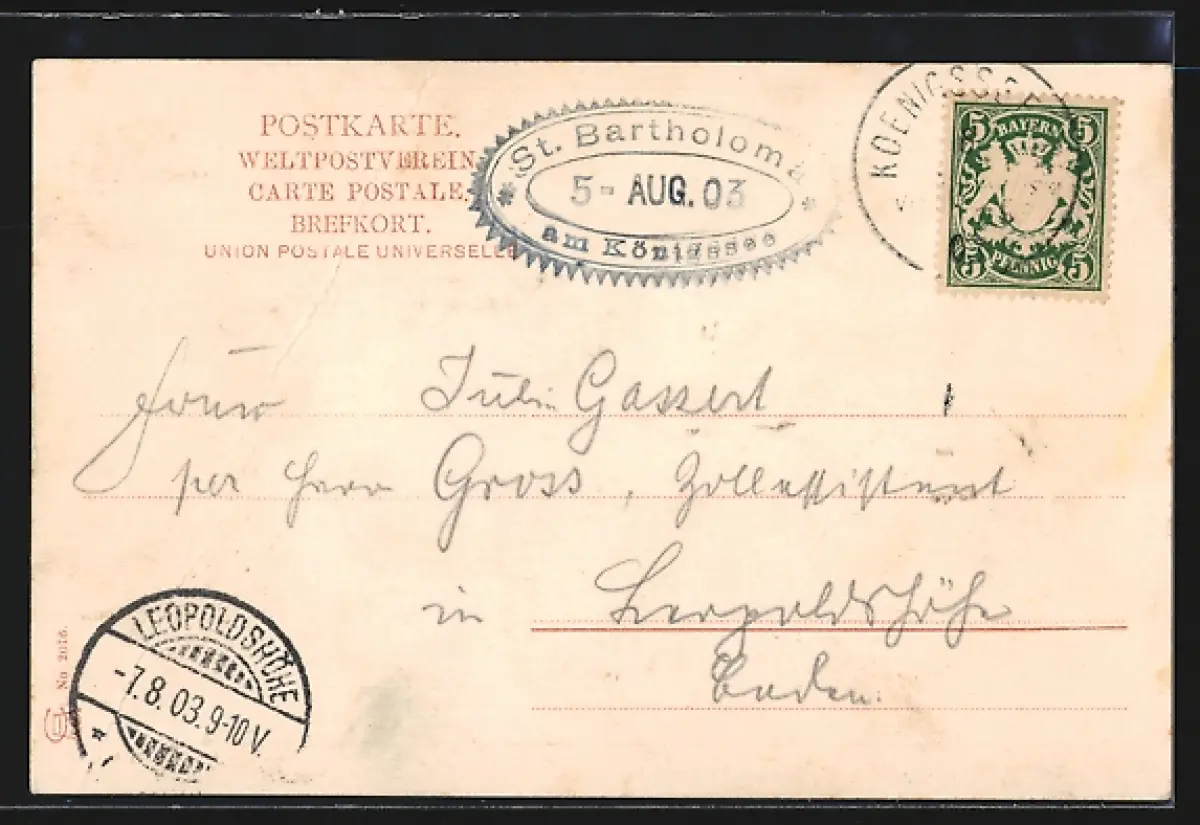 POSTKARTE.
WELTPOSTVEREIN
CARTE POSTALE.
BREFKORT.
UNION POSTALE UNIVERSELLE
St. Bartholomä
5 - AUG. 03
am Königssee
KOENIGSSEE
5 BAYERN 5
5 PFENNIG 5
Julie Gassert
per Herrn Gross, Zollassistent
in Leopoldshöhe
Baden.
LEOPOLDSHÖHE
-7.8.03.9-10V.
No 2016.